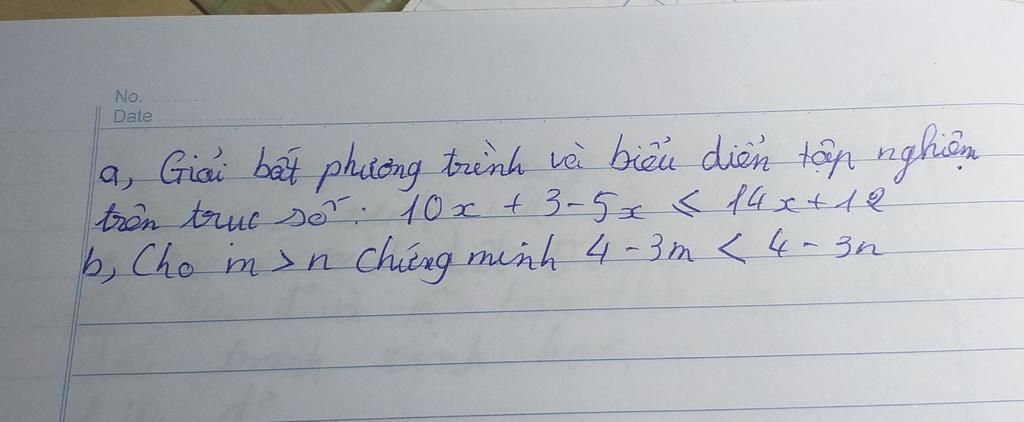 No. ..........
Date ......................
a, Giải bất phương trình và biểu diễn tập nghiệm
trên trục số: 10x + 3 - 5x ≤ 14x + 12
b, Cho m > n chứng minh 4 - 3m < 4 - 3n